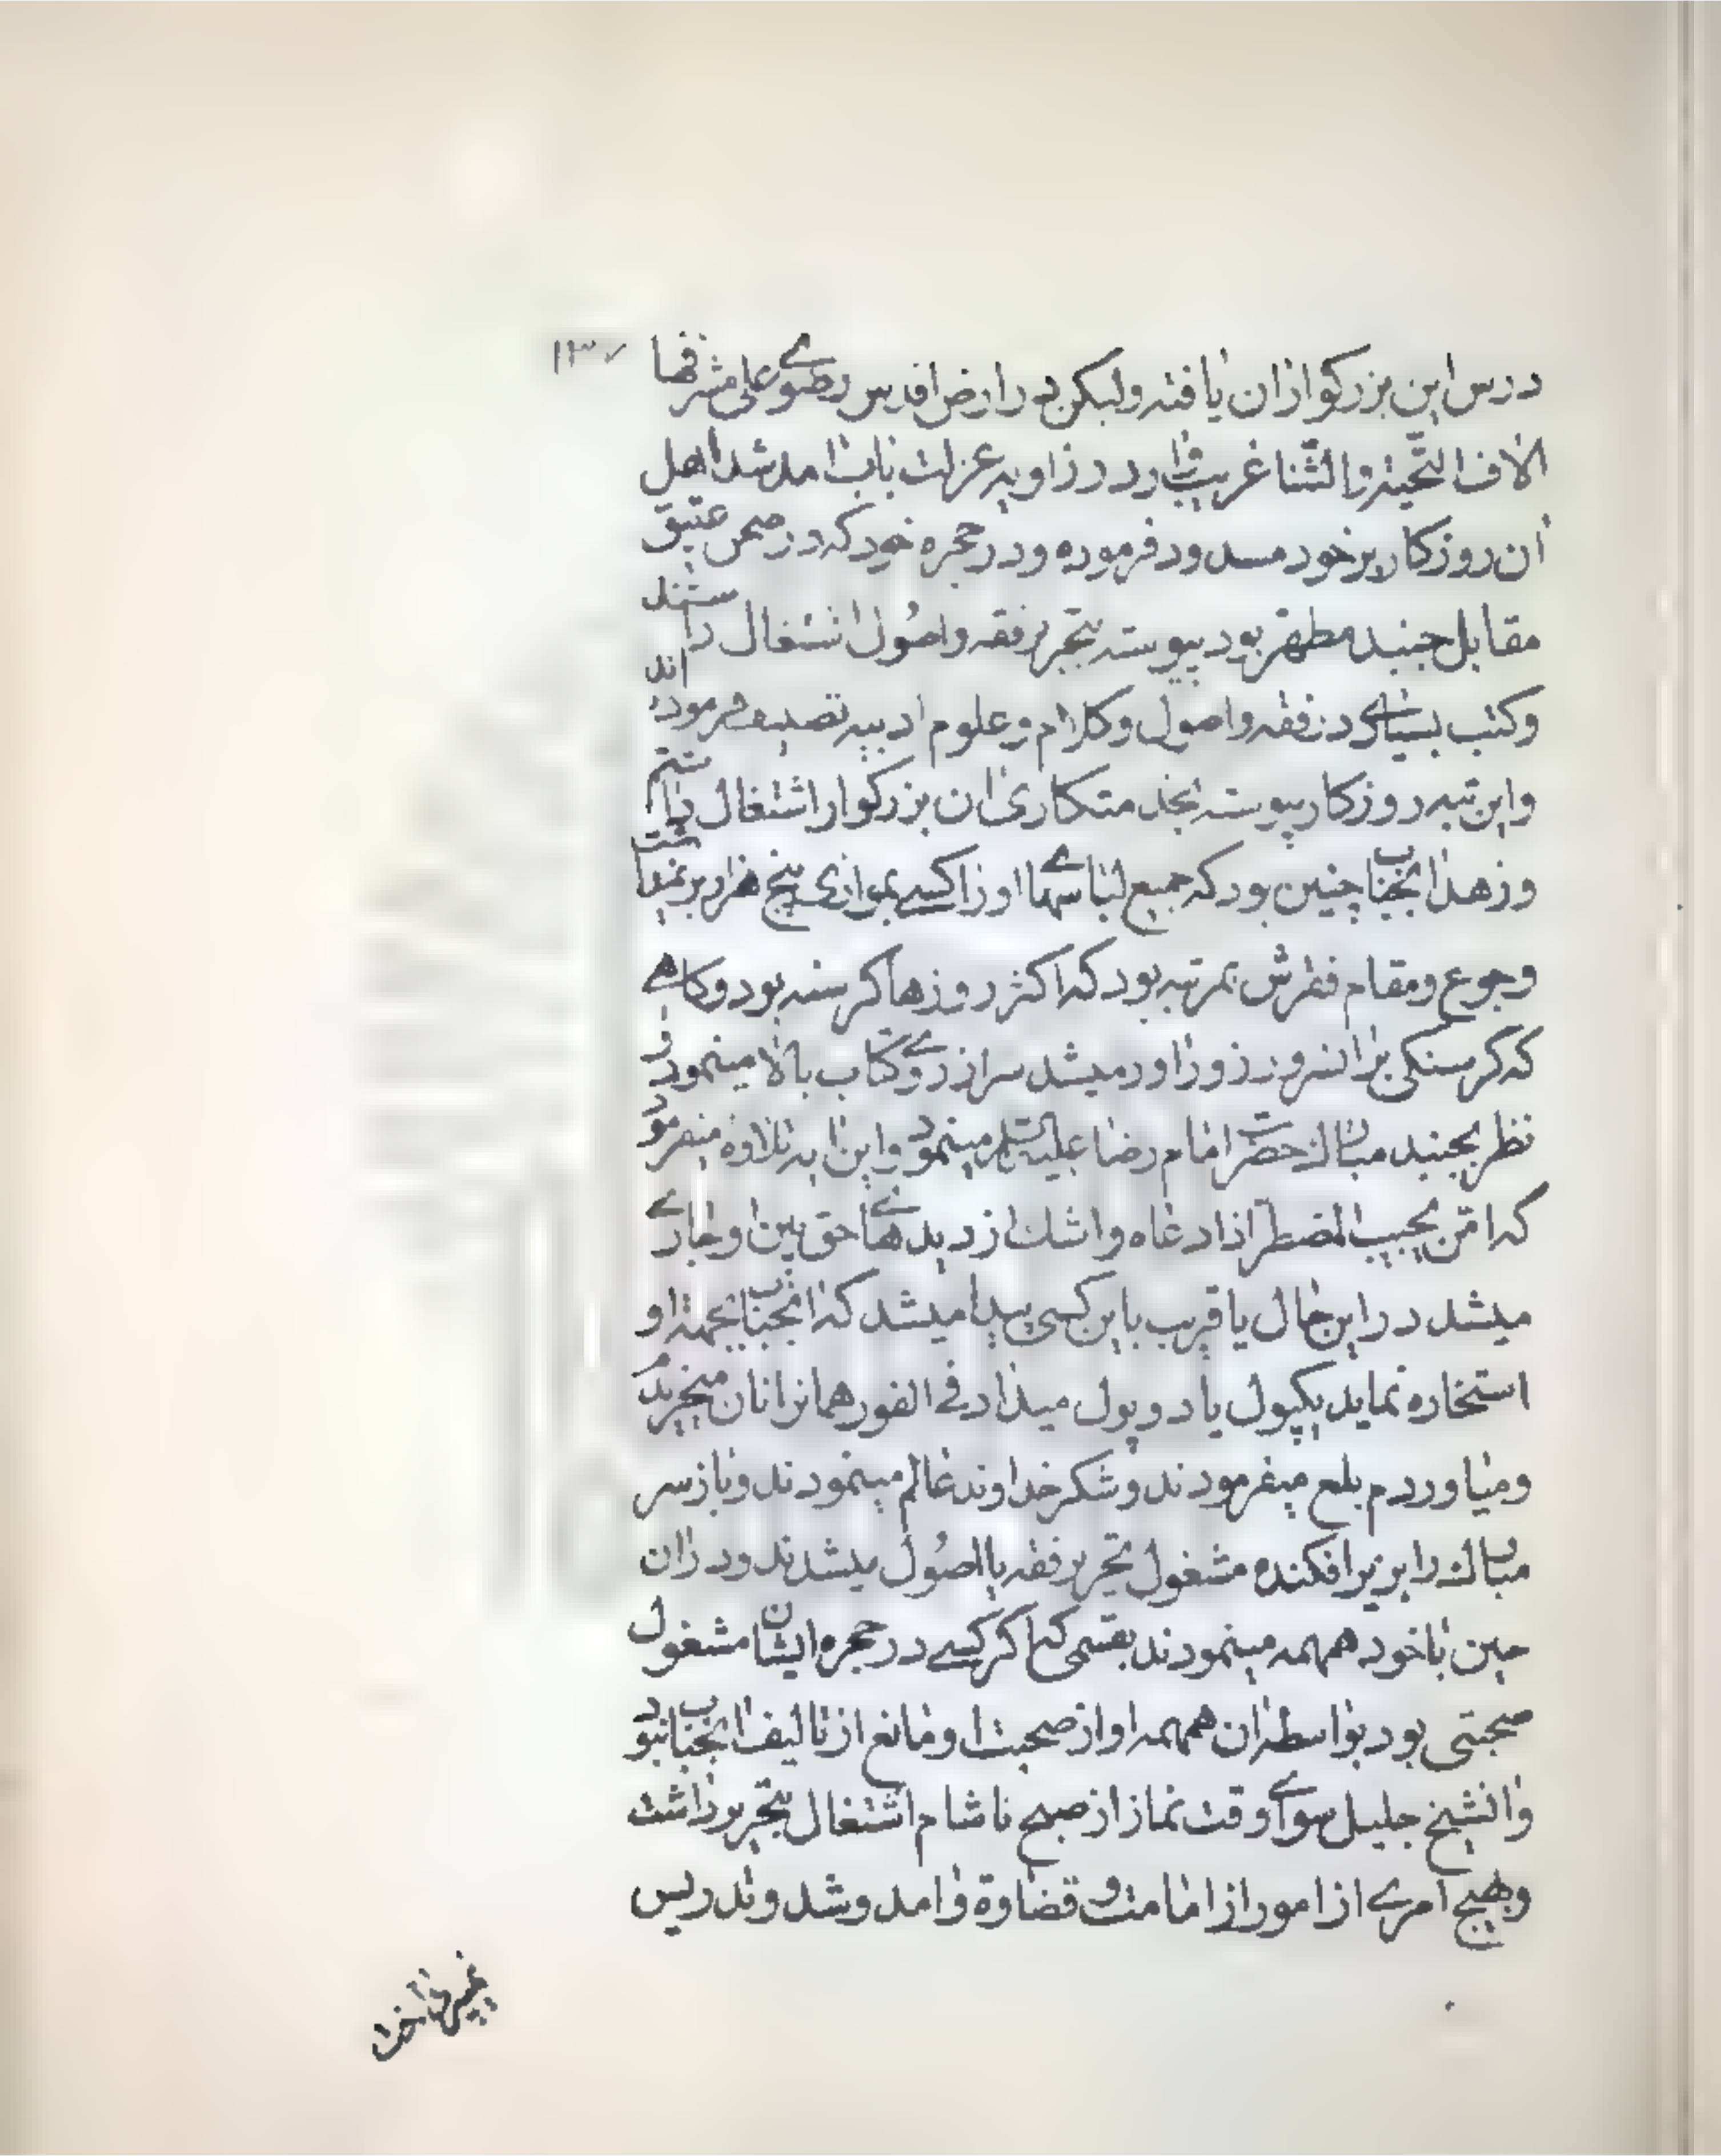 ۱۳۷
درس این بزرکوار ان یافته ولیکن در ارض اقدس رضوی علی مشرفها
الاف التحیة والثنا غریب وار در زاویه عزلت باب امد شد اهل
ان روزکار بر خود مسدود فرموده و در حجره خود که در صحن عتیق
مقابل جنبد مطهر بود پیوسته بتحریر فقه و اصُول اشتغال داشتند
و کتب بسیاری در فقه و اصول و کلام و علوم ادبیه تصنیف فرموده‌اند
و این تیره روزکار پیوسته بخدمتکاری ان بزرکوار اشتغال داشتم
و زهد انجناب چنین بود که جمیع لباسهای او زا کسے بموازی پنج هزار بر نمیداشت
و جوع و مقام فقرش بمرتبه بود که اکثر روزها کرسنه بود و کاهے
که کرسنکی بر انسرور زوراور میشد سر از روی کتاب بالا مینمود و
نظر بجنبد مبارک حضرت امام رضا علیه السلام مینمود و این ایه تلاوه میفرمود
که امّن یجیب المضطر اذا دعاه و اشک از دیدهای حق بین او جاری
میشد در این حال یا قریب باین کسی پیدا میشد که انجناب بجهة او
استخاره نماید یکپول یا دو پول میداد فی الفور همانرا نان میخریدم
و میاوردم بلع میفرمودند و شکر خداوند عالم مینمودند و باز سر
مبارک را بزیر افکنده مشغول تحریر فقه یا اصُول میشدند و در ان
حین با خود همهمه مینمودند بقسمی که اکر کسے در حجره ایشان مشغول
صحبتی بود بواسطه ان همهمه اواز صحبت او مانع از تالیف انجناب نبود
و انشیخ جلیل سوای وقت نماز از صبح تا شام اشتغال بتحریر داشت
و هیچ امرے از امور از امامت و قضاوة و امد و شد و تدریس